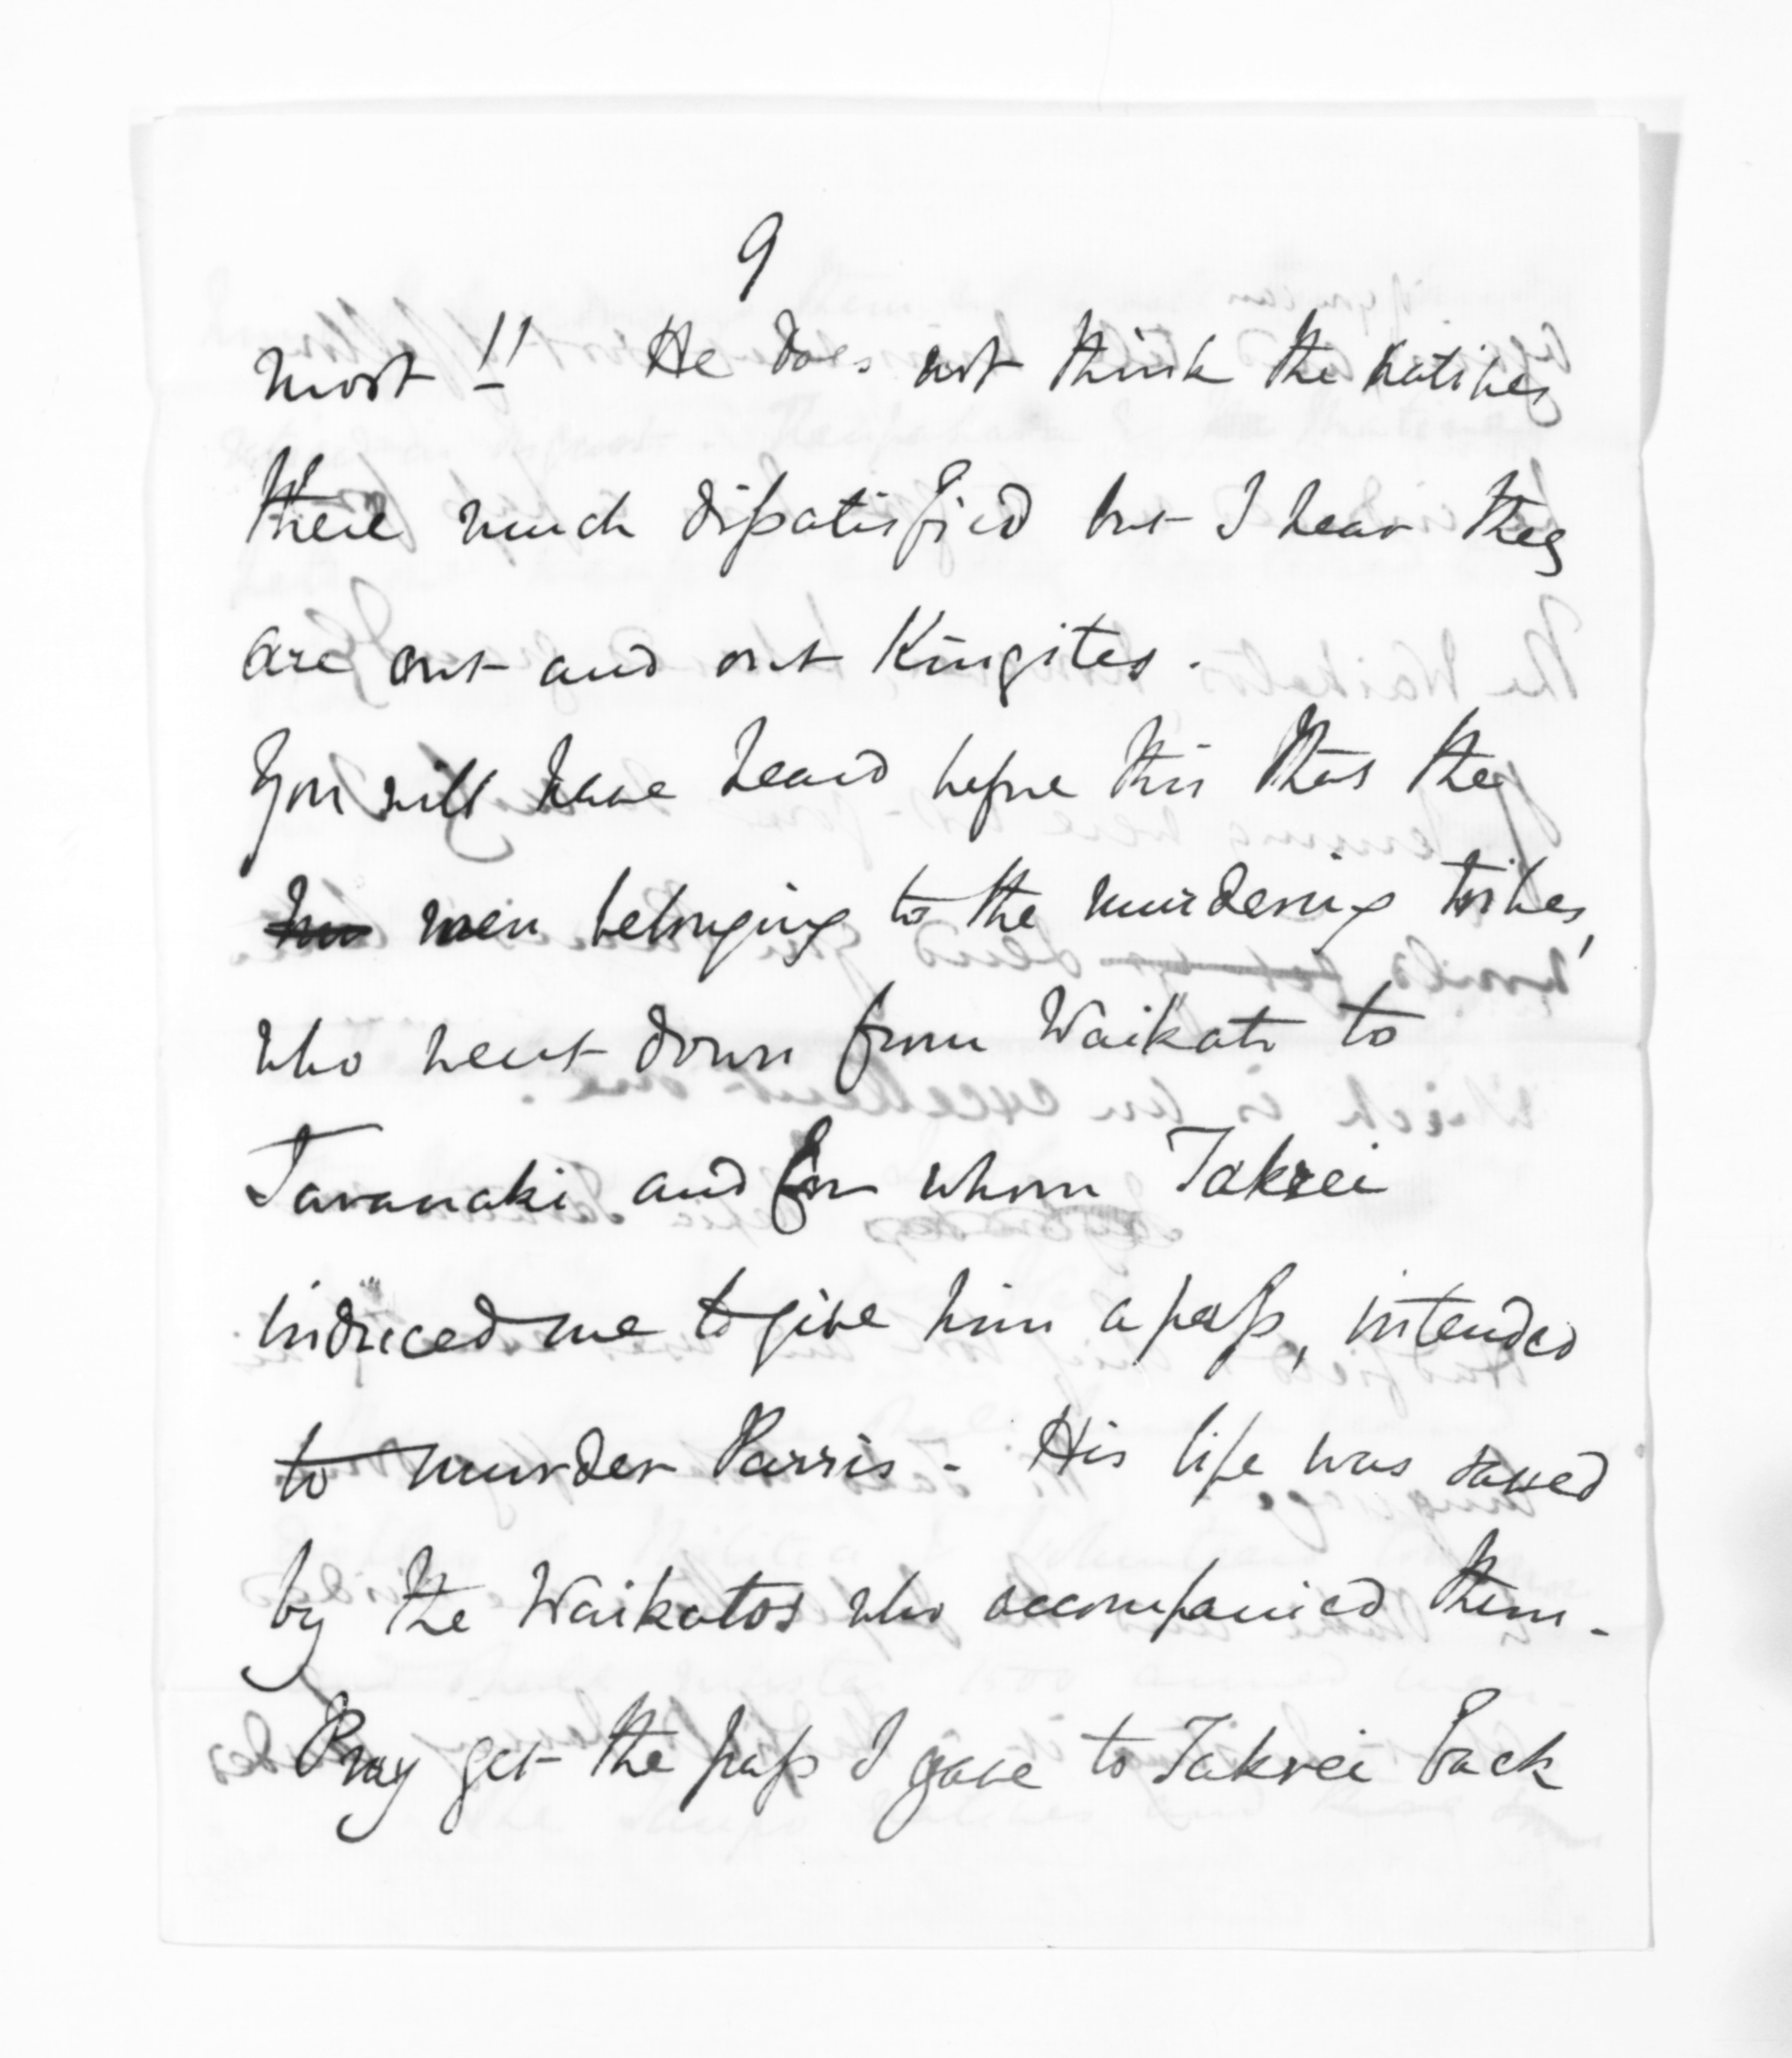 9
most!! He does not think the natives
there much dissatisfied but I hear they
are out and out Kingites.
You will have heard before this that the
men belonging to the murdering tribes,
who went down from Waikato to
Taranaki and for whom Takrei
induced me to give him a pass, intended
to murder Parris - His life was saved
by the Waikatos who accompanied them.
Pray get the pass I gave to Takrei back